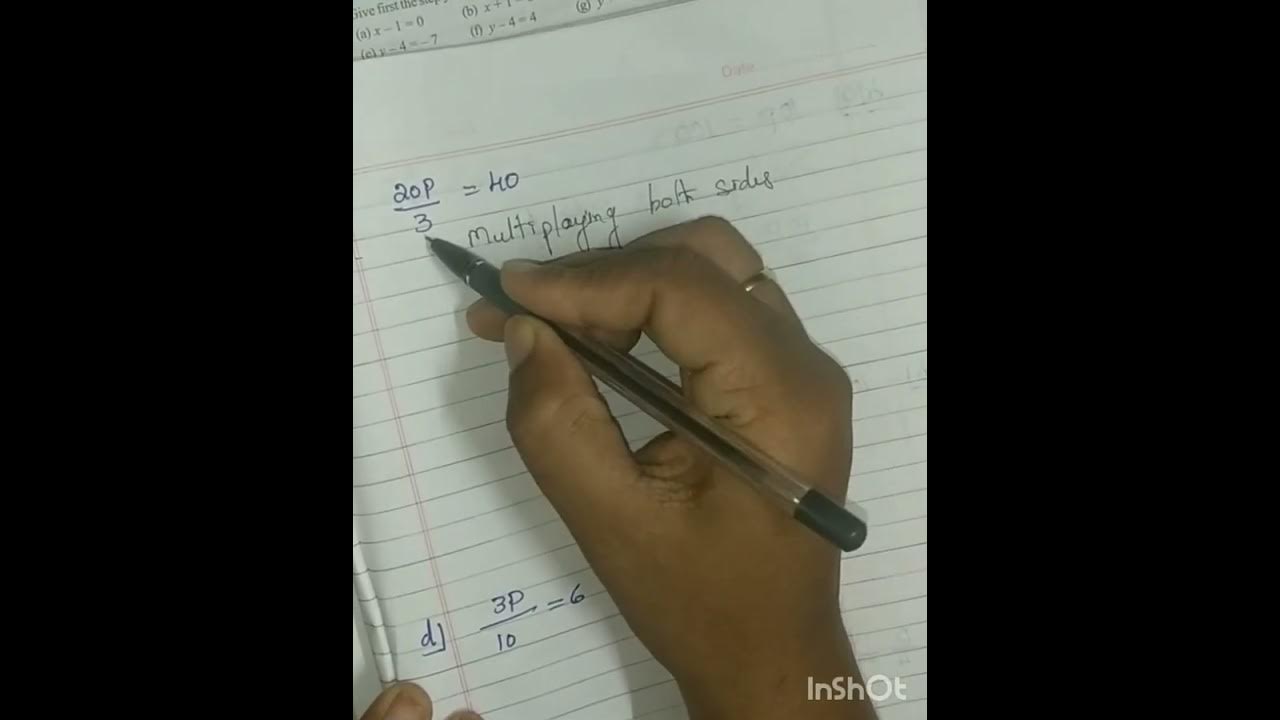 Give first the step
(a) x – 1 = 0
(b) x + 1
(g) y
(e) y – 4 = – 7
(f) y – 4 = 4
Date
20P/3 = 40
Multiplaying both sides
d] 3P/10 = 6
InShOt